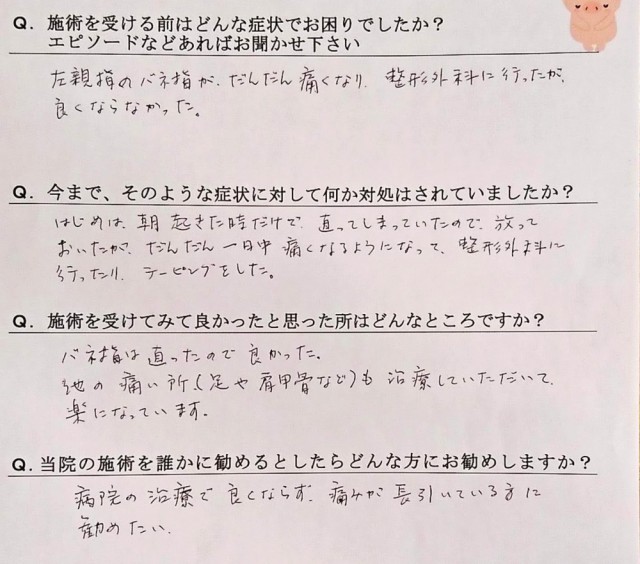 Q. 施術を受ける前はどんな症状でお困りでしたか？
エピソードなどあればお聞かせ下さい
左親指のバネ指が、だんだん痛くなり、整形外科に行ったが、
良くならなかった。
Q. 今まで、そのような症状に対して何か対処はされていましたか？
はじめは、朝起きた時だけで、直ってしまっていたので、放って
おいたが、だんだん一日中痛くなるようになって、整形外科に
行ったり、テーピングをした。
Q. 施術を受けてみて良かったと思った所はどんなところですか？
バネ指は直ったので良かった。
他の痛い所(足や肩甲骨など)も治療していただいて、
楽になっています。
Q. 当院の施術を誰かに勧めるとしたらどんな方にお勧めしますか？
病院の治療で良くならず、痛みが長引いている方に
勧めたい。